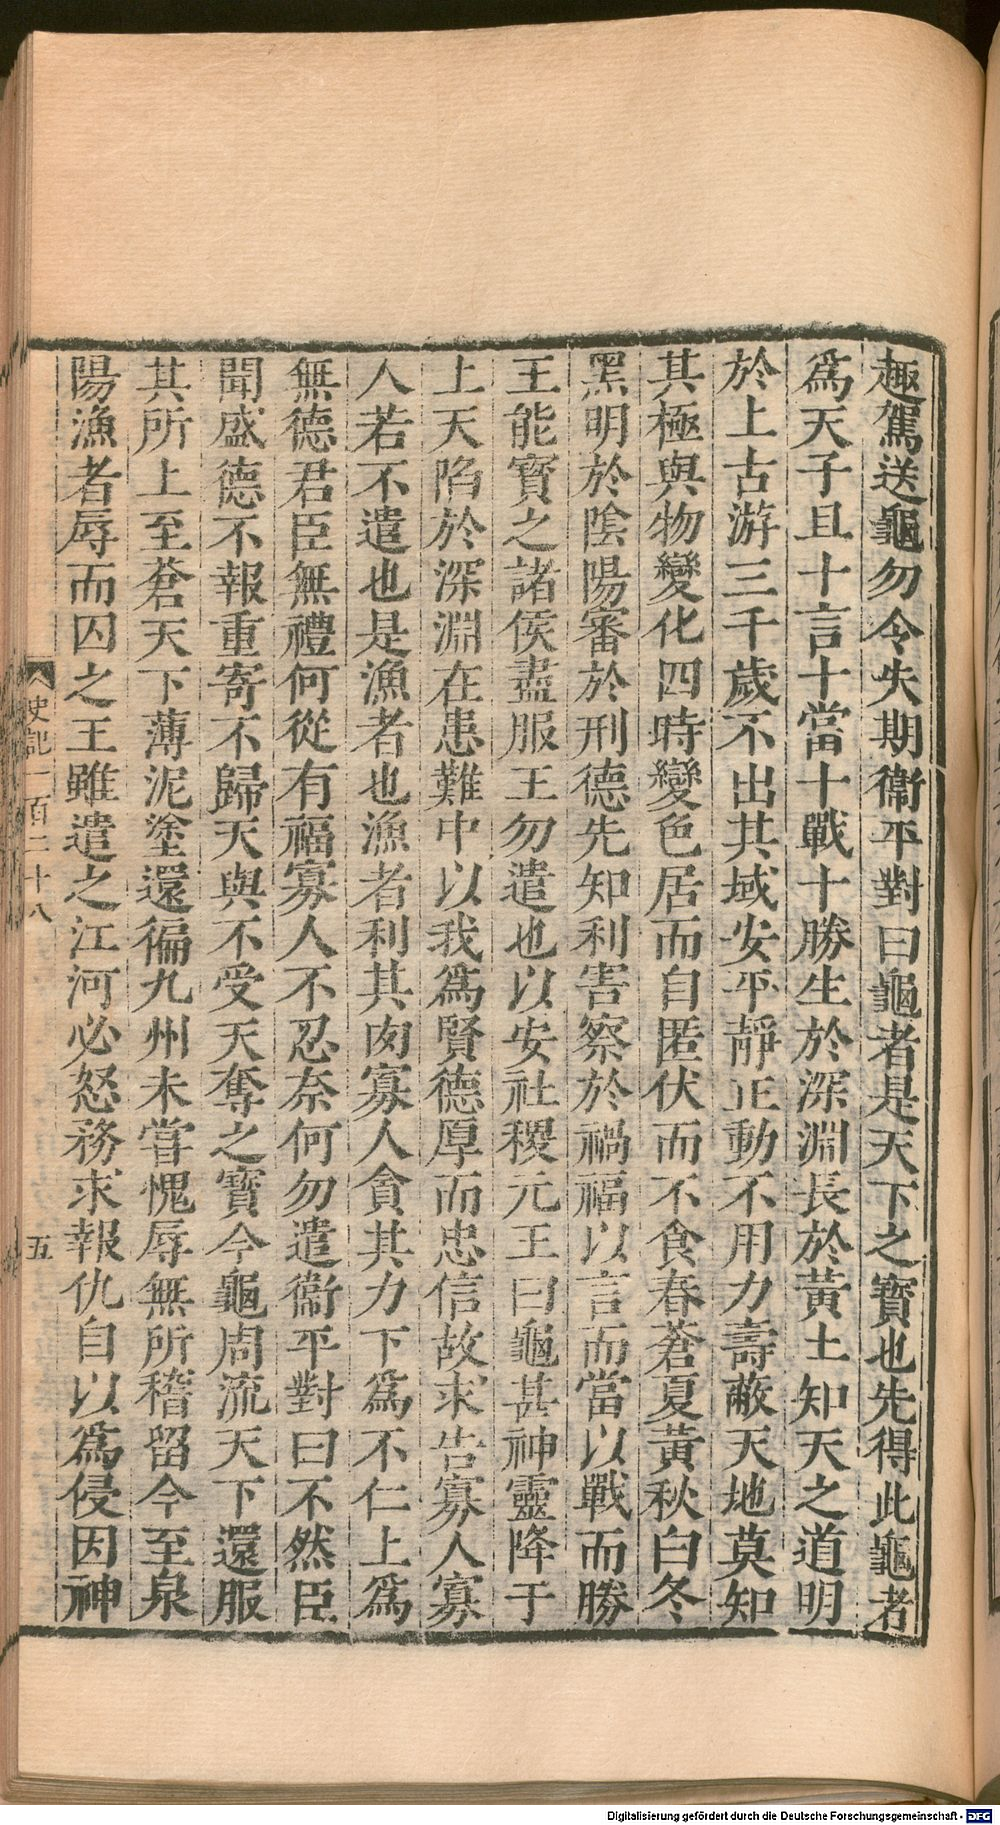 趣駕送龜勿令失期衞平對曰龜者是天下之寶也先得此龜者
爲天子且十言十當十戰十勝生於深淵長於黃土知天之道明
於上古游三千歲不出其域安平靜正動不用力壽蔽天地莫知
其極與物變化四時變色居而自匿伏而不食春蒼夏黃秋白冬
黑明於陰陽審於刑德先知利害察於禍福以言而當以戰而勝
王能寶之諸侯盡服王勿遣也以安社稷元王曰龜甚神靈降于
上天陷於深淵在患難中以我爲賢德厚而忠信故求告寡人寡
人若不遣也是漁者也漁者利其肉寡人貪其力下爲不仁上爲
無德君臣無禮何從有福寡人不忍奈何勿遣衞平對曰不然臣
聞盛德不報重寄不歸天與不受天奪之寶今龜周流天下還服
其所上至蒼天下薄泥塗還徧九州未嘗愧辱無所稽留今至泉
陽漁者辱而囚之王雖遣之江河必怒務求報仇自以爲侵因神
史記一百二十八
五
Digitalisierung gefördert durch die Deutsche Forschungsgemeinschaft - DFG